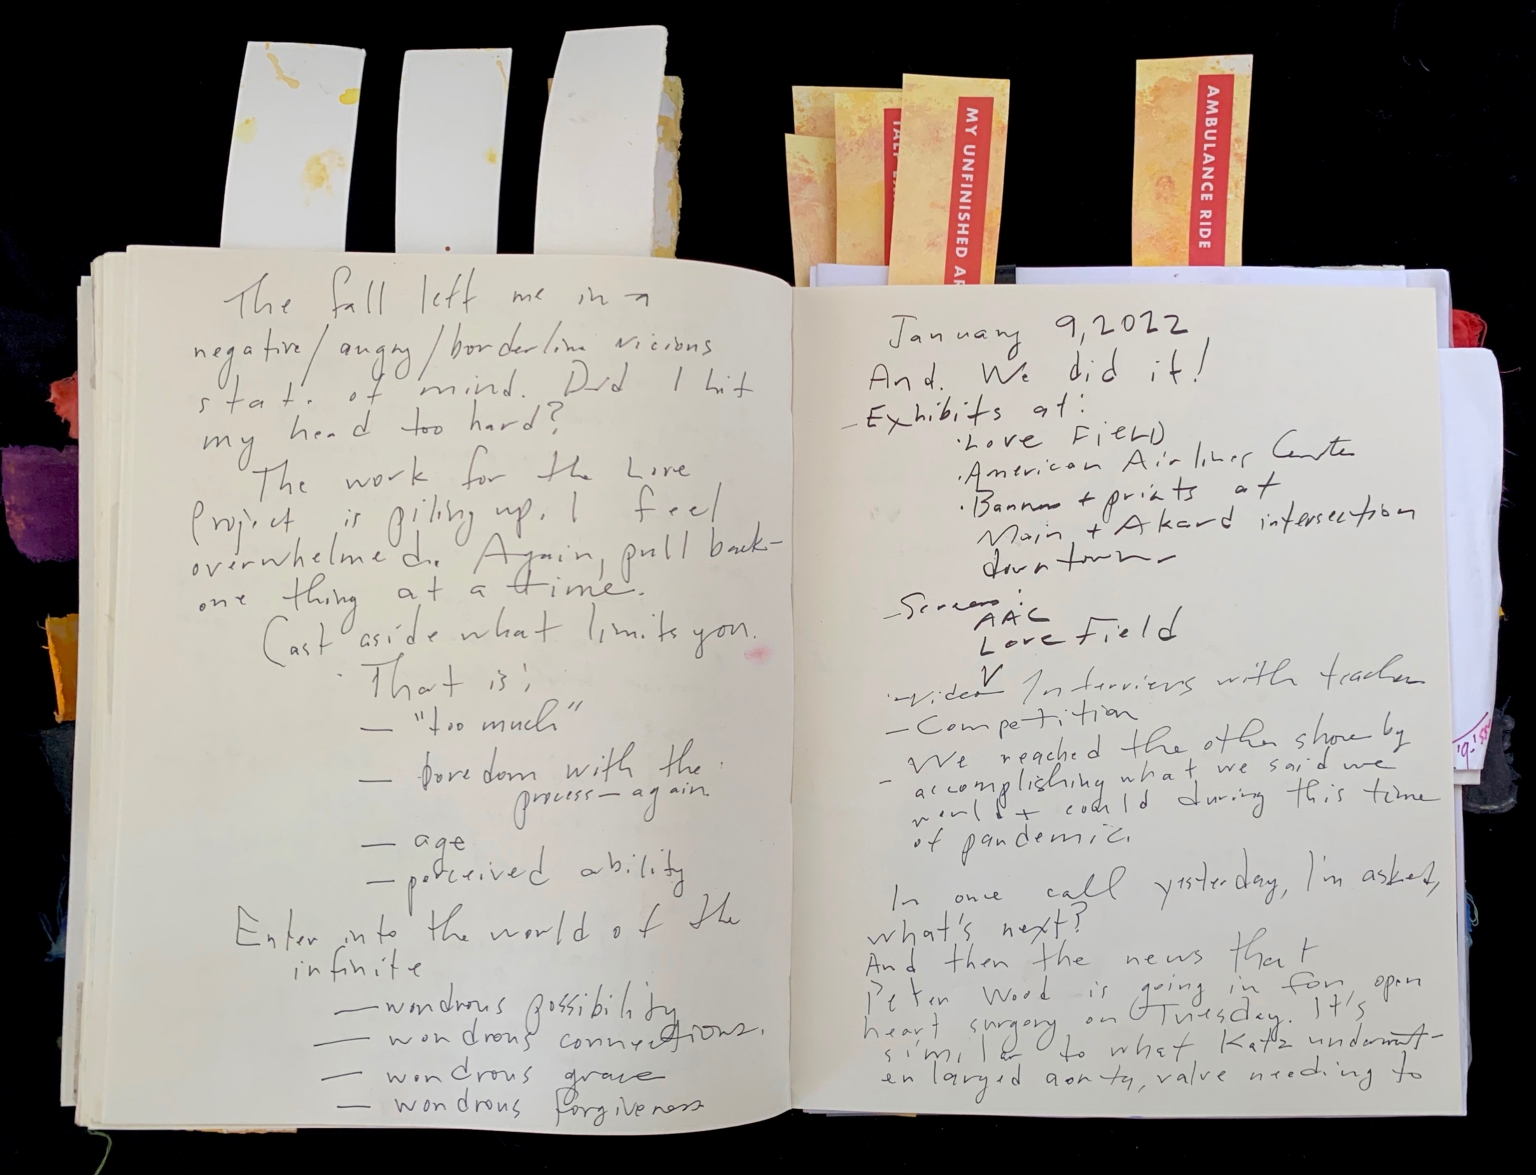 MY UNFINISHED AR
AMBULANCE RIDE
The fall left me in a
negative/angry/borderline vicious
state of mind. Did I hit
my head too hard?
The work for the Love
Project is piling up. I feel
overwhelmed. Again, pull back–
one thing at a time.
Cast aside what limits you.
That is:
— "too much"
— boredom with the
process – again
— age
— perceived ability
Enter into the world of the
infinite
— wondrous possibility
— wondrous connections.
— wondrous grace
— wondrous forgiveness
January 9, 2022
And. We did it!
– Exhibits at:
· Love Field
· American Airlines Center
· Banners + prints at
Main + Akard intersection
downtown –
– Screens:
AAC
Love Field
V
– Video Interviews with teachers
– Competition
– We reached the other shore by
accomplishing what we said we
would + could during this time
of pandemic.
In one call yesterday, I'm asked,
what's next?
And then the news that
Peter Wood is going in for open
heart surgery on Tuesday. It's
similar to what Katz underwent–
enlarged aorta, valve needing to